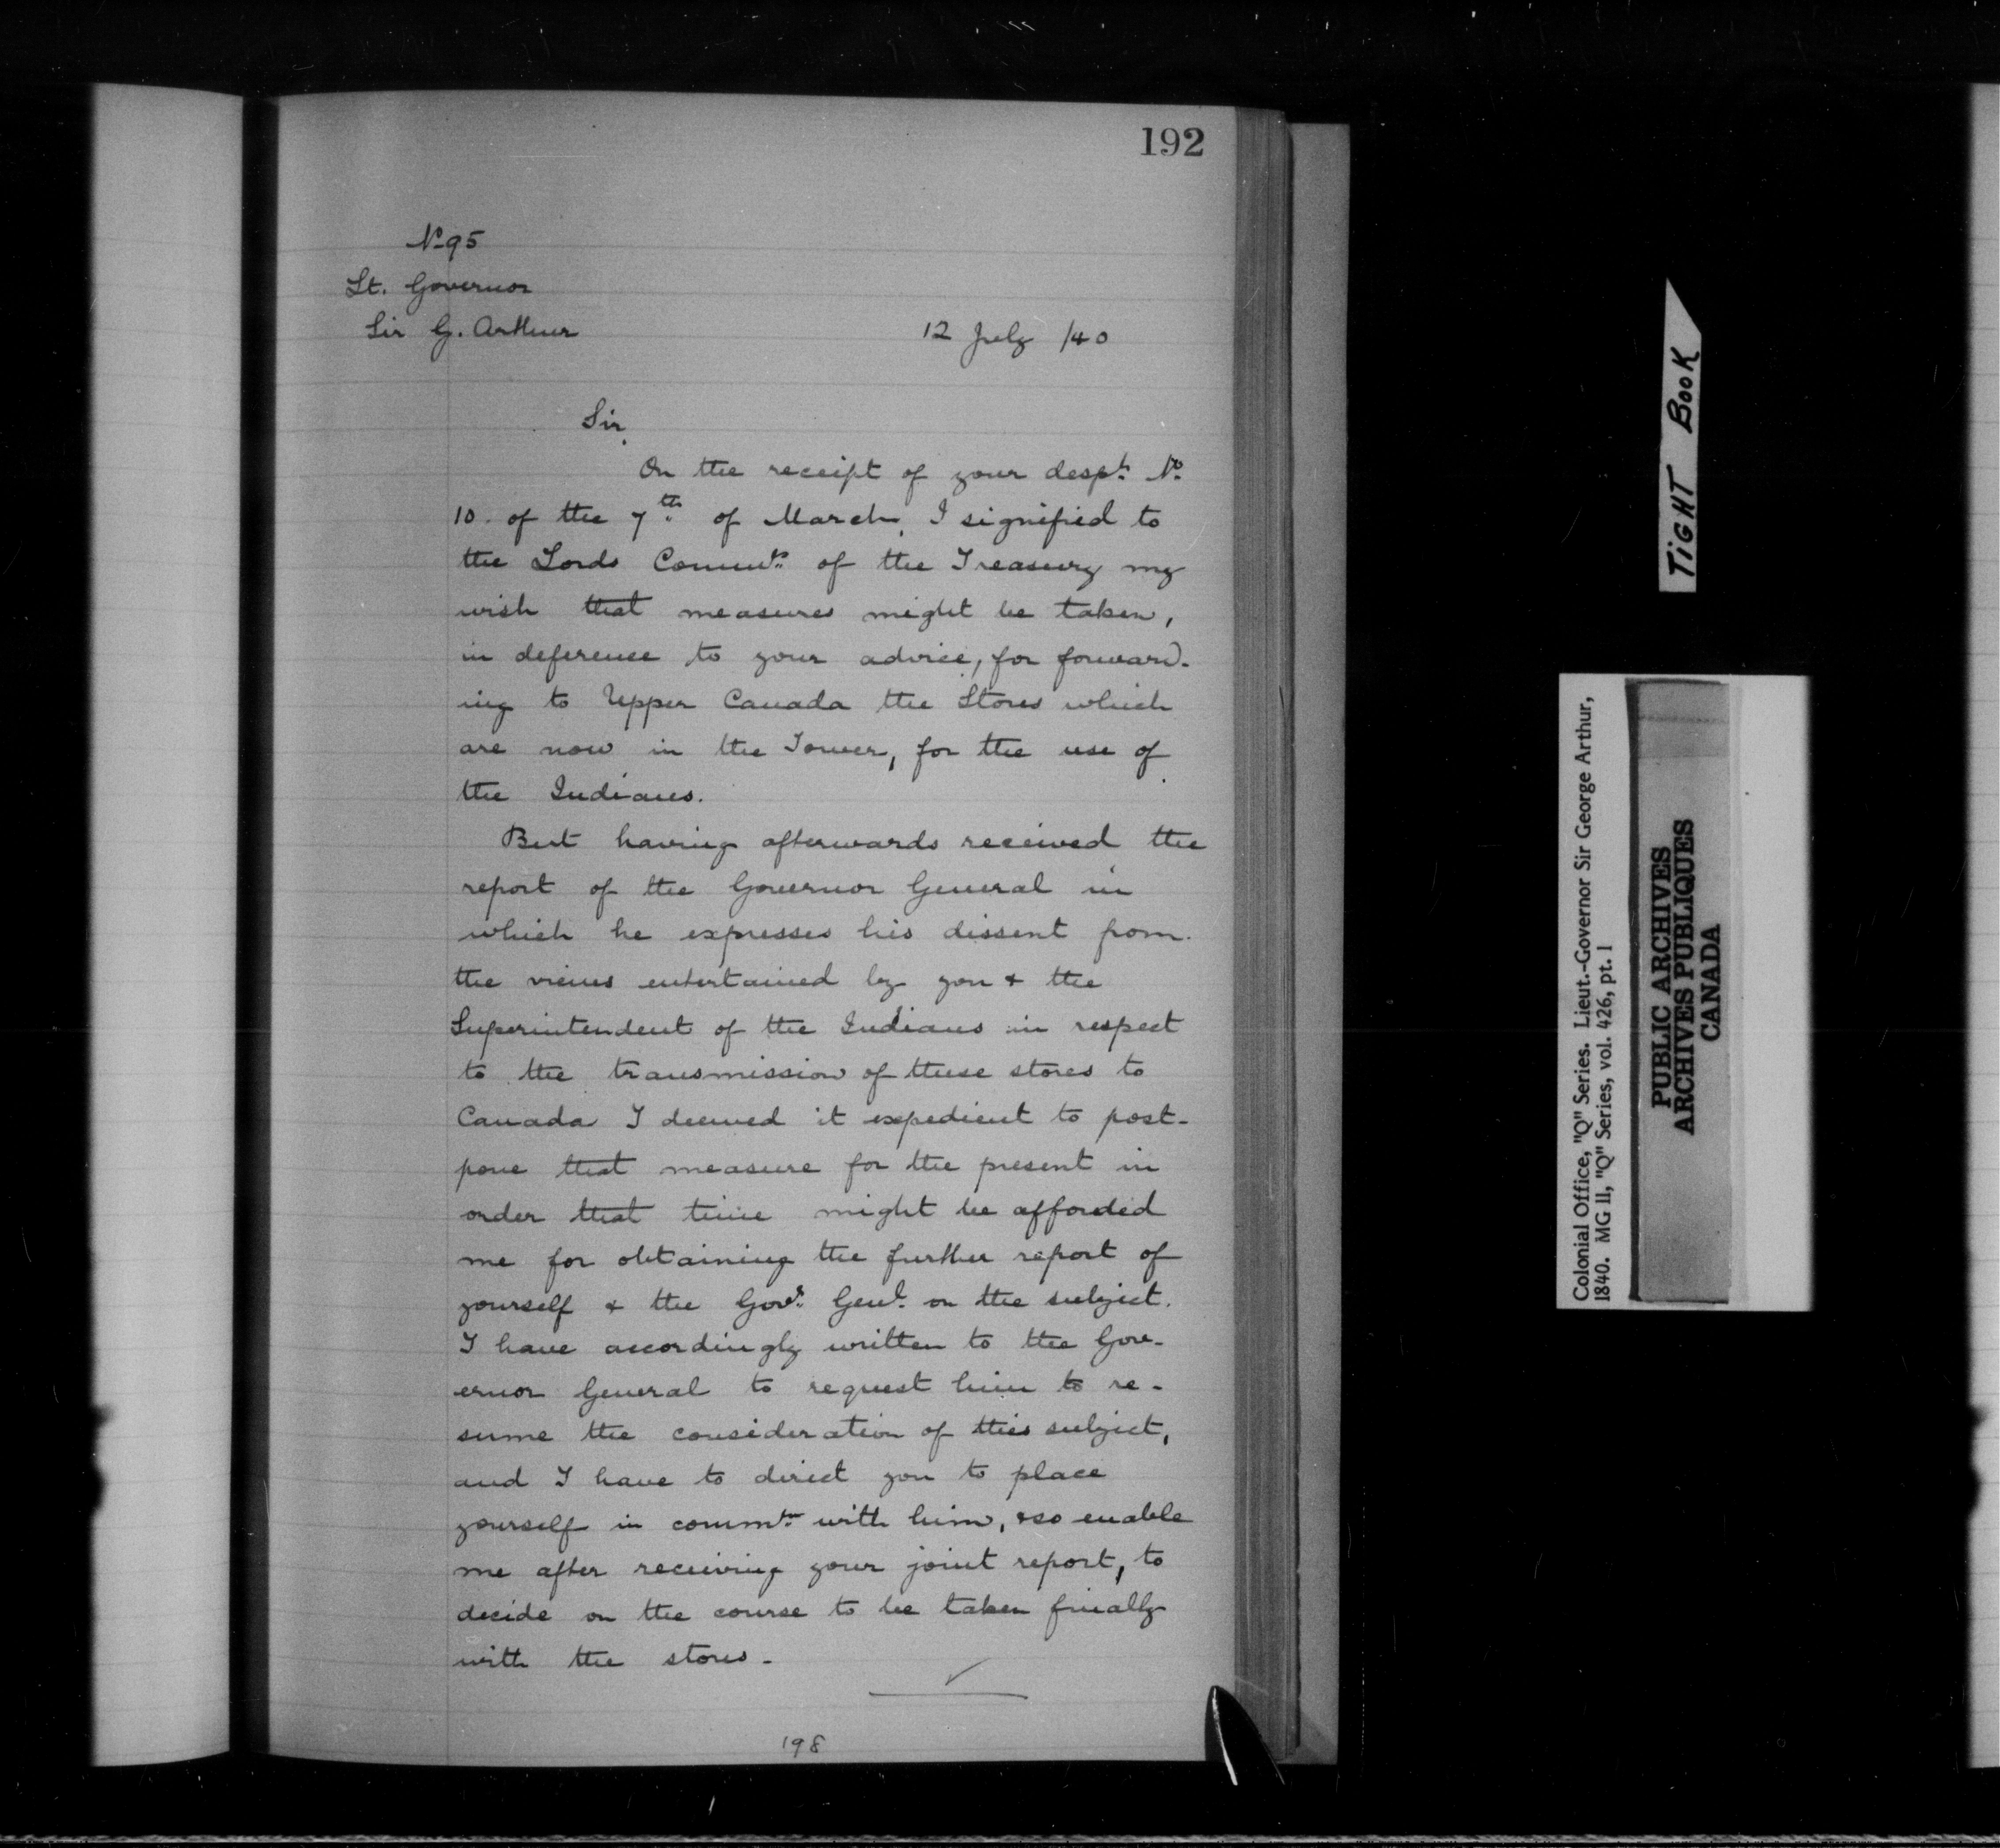 192
No 95
Lt. Governor
Sir G. Arthur
12 July /40
Sir,
On the receipt of your despt. No.
10. of the 7th. of March, I signified to
the Lords Commrs. of the Treasury my
wish that measures might be taken,
in deference to your advice, for forward-
ing to Upper Canada the Stores which
are now in the Tower, for the use of
the Indians.
But having afterwards received the
report of the Governor General in
which he expresses his dissent from
the views entertained by you & the
Superintendent of the Indians in respect
to the transmission of these stores to
Canada I deemed it expedient to post-
pone that measure for the present in
order that time might be afforded
me for obtaining the further report of
yourself & the Govr. Genl. on the subject.
I have accordingly written to the Gov-
ernor General to request him to re-
sume the consideration of this subject,
and I have to direct you to place
yourself in commtn. with him, & so enable
me after receiving your joint report, to
decide on the course to be taken finally
with the stores.-
198
TIGHT BOOK
Colonial Office, "Q" Series. Lieut.-Governor Sir George Arthur,
1840. MG 11, "Q" Series, vol. 426, pt. 1
PUBLIC ARCHIVES
ARCHIVES PUBLIQUES
CANADA